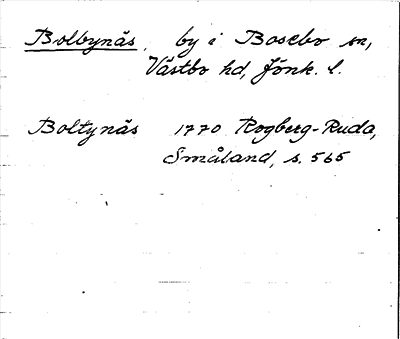 Bolbynäs, by i Bosebo sn,
Västbo hd, Jönk. l.
Boltynäs 1770 Rogberg-Ruda,
Småland, s. 565